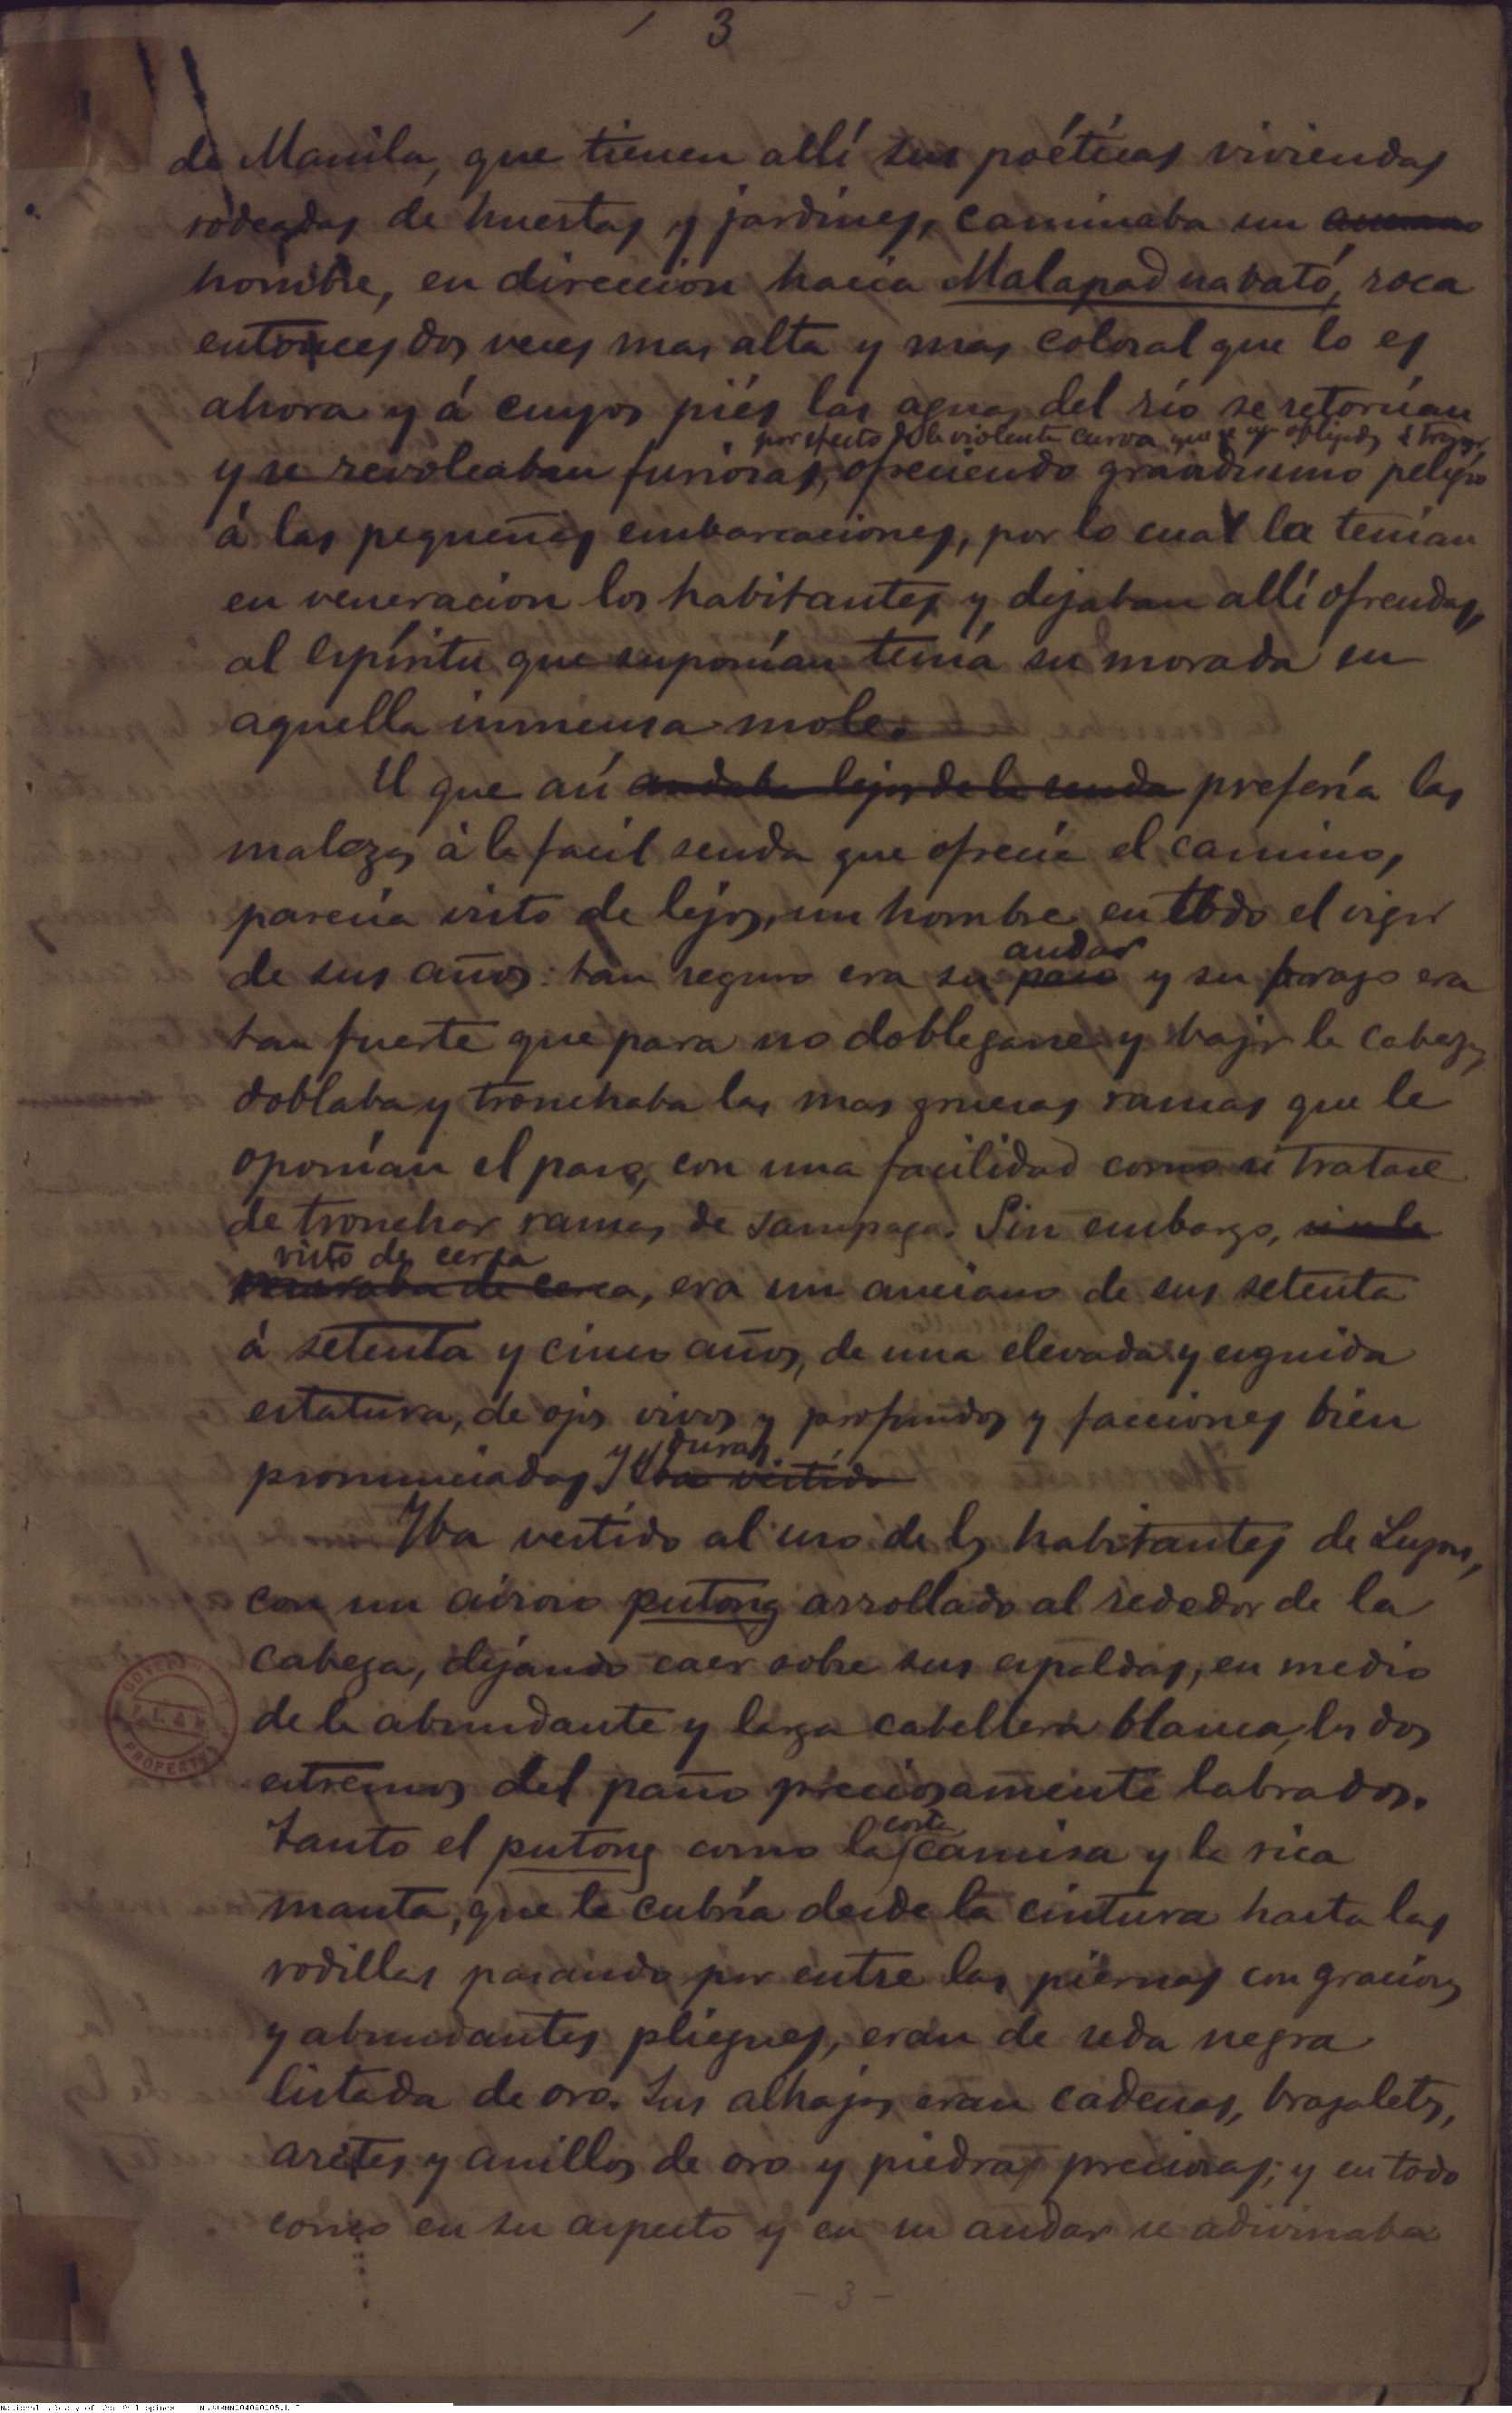 3
de Manila, que tienen allí sus poéticas viviendas
rodeadas de huertas y jardines, caminaba un
hombre, en direccion hacia Malapad na bató, roca
entonces dos veces mas alta y mas colosal que lo es
ahora y á cuyos piés las aguas del río se retorcían
por efecto de la violenta curva que se ven obligadas á trazar
y se revolcaban furiosas, ofreciendo grandísimo peligro
á las pequeñas embarcaciones, por lo cual la tenían
en veneracion los habitantes y dejaban allí ofrendas,
al espíritu que suponían tenía su morada en
aquella inmensa mole.
El que así andaba lejos de la senda prefería las
malezas á la facil senda que ofrecía el camino,
parecía visto de lejos, un hombre en todo el vigor
andar
de sus años: tan seguro era su paso y su brazo era
tan fuerte que para no doblegarse y bajar la cabeza,
doblaba y tronchaba las mas gruesas ramas que le
oponían el paso, con una facilidad como si tratase
de tronchar ramas de sampaga. Sin embargo,
visto de cerca
de cerca, era un anciano de sus setenta
á setenta y cinco años, de una elevada y erguida
estatura, de ojos vivos y profundos y facciones bien
y duras
pronunciadas. Iba vestido
Iba vestido al uso de los habitantes de Luzon,
con un airoso putong arrollado al rededor de la
cabeza, dejando caer sobre sus espaldas, en medio
de la abundante y larga cabellera blanca, los dos
estremos del paño preciosamente labrados.
corta
Tanto el putong como la camisa y la rica
manta, que le cubría desde la cintura hasta las
rodillas pasando por entre las piernas con graciosos
y abundantes pliegues, eran de seda negra
listada de oro. Sus alhajas eran cadenas, brazaletes,
aretes y anillos de oro y piedras preciosas; y en todo
como en su aspecto y en su andar se adivinaba
- 3 -
GOVERNMENT
PROPERTY
National Library of the Philippines